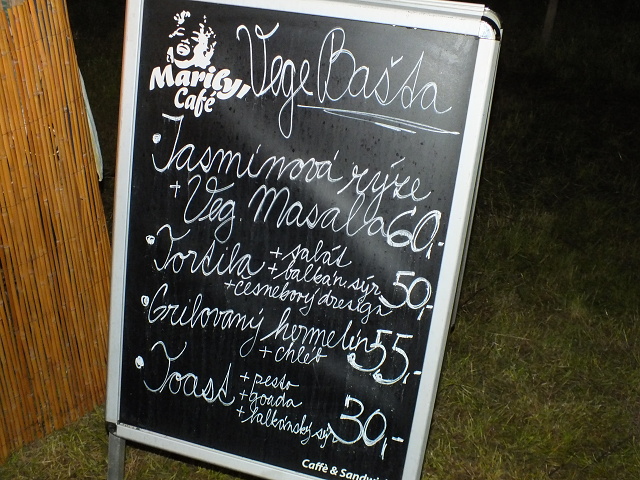 Marilyn
Café
Vege Bašta
Jasmínová rýže
+ Veg. Masala 60,-
Tortila + salát
+ balkán. sýr 50,-
+ česnekový dresing
Grilovaný hermelín 55,-
+ chléb
Toast + pesto
+ gouda 30,-
+ balkánský sýr
Caffè &